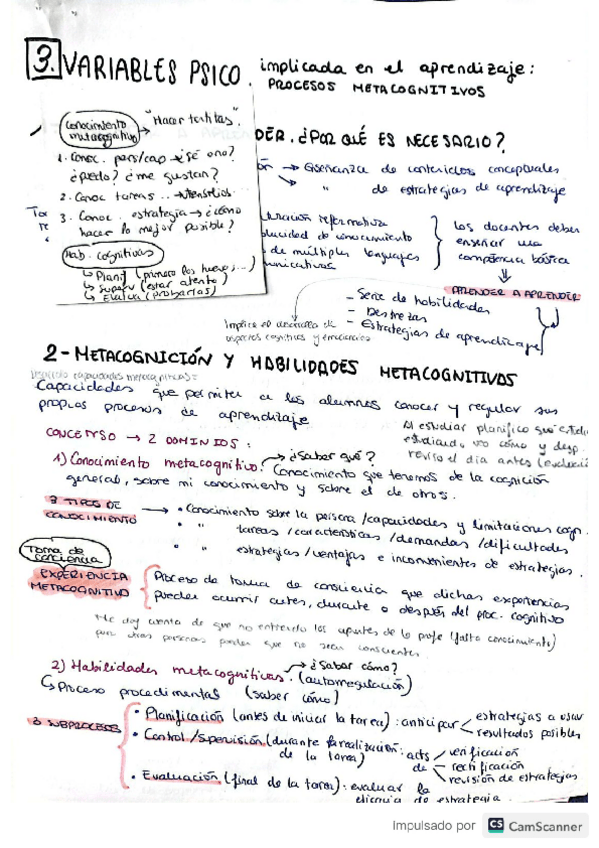 3. VARIABLES PSICO. implicada en el aprendizaje:
PROCESOS METACOGNITIVOS
Conocimiento metacognitivo → "Hacer tortitas".
1. Conoc. pers/cap → ¿Sé o no?
¿puedo? ¿me gustan?
2. Conoc tareas → utensilios
3. Conoc. estrategia → ¿cómo
hacer lo mejor posible?
Hab. cognitivas
↳ Planif (primero los huevos...)
↳ Superv (estar atento)
↳ Evalua (probarlas)
DER. ¿POR QUÉ ES NECESARIO?
ón → Enseñanza de contenidos conceptuales
→ " de estrategias de aprendizaje
Ta
re
uración informativa
lucidad de conocimiento
de múltiples lenguajes
unicativos
Los docentes deben
enseñar una
competencia básica
APRENDER A APRENDER
- Serie de habilidades
- Destrezas
- Estrategias de aprendizaje
Implica el desarrollo de
aspectos cognitivos y emocionales
2 - METACOGNICIÓN Y HABILIDADES METACOGNITIVAS
Desarrollo capacidades metacognitivas =
Capacidades que permiten a los alumnos conocer y regular sus
propios procesos de aprendizaje
Al estudiar planifico que
estudiando, veo cómo y desp.
reviso el día antes
CONCEPTO → 2 DOMINIOS:
1) Conocimiento metacognitivo. → ¿Saber qué?
Conocimiento que tenemos de la cognición
general, sobre mi conocimiento y sobre el de otros.
3 TIPOS DE
CONOCIMIENTO
→ • Conocimiento sobre la persona / capacidades y limitaciones cogn.
• " " tareas / características / demandas / dificultades
• " " estrategias / ventajas e inconvenientes de estrategias.
Toma de
conciencia
EXPERIENCIA
METACOGNITIVO
Proceso de toma de consciencia que dichas experiencias
pueden ocurrir antes, durante o después del proc. cognitivo
Me doy cuenta de que no entiendo los apuntes de la profe (falta conocimiento)
pero otras personas pueden que no sean conscientes
2) Habilidades metacognitivas. → ¿Saber cómo?
(autorregulación)
↳ Proceso procedimental (saber cómo)
3 SUBPROCESOS
• Planificación (antes de iniciar la tarea): anticipar
estrategias a usar
resultados posibles
• Control / Supervisión (durante la realización
de la tarea)
: acts
de
verificación
- rectificación
revisión de estrategias
• Evaluación (final de la tarea): evaluar la
eficacia de estrategia
Impulsado por CS CamScanner